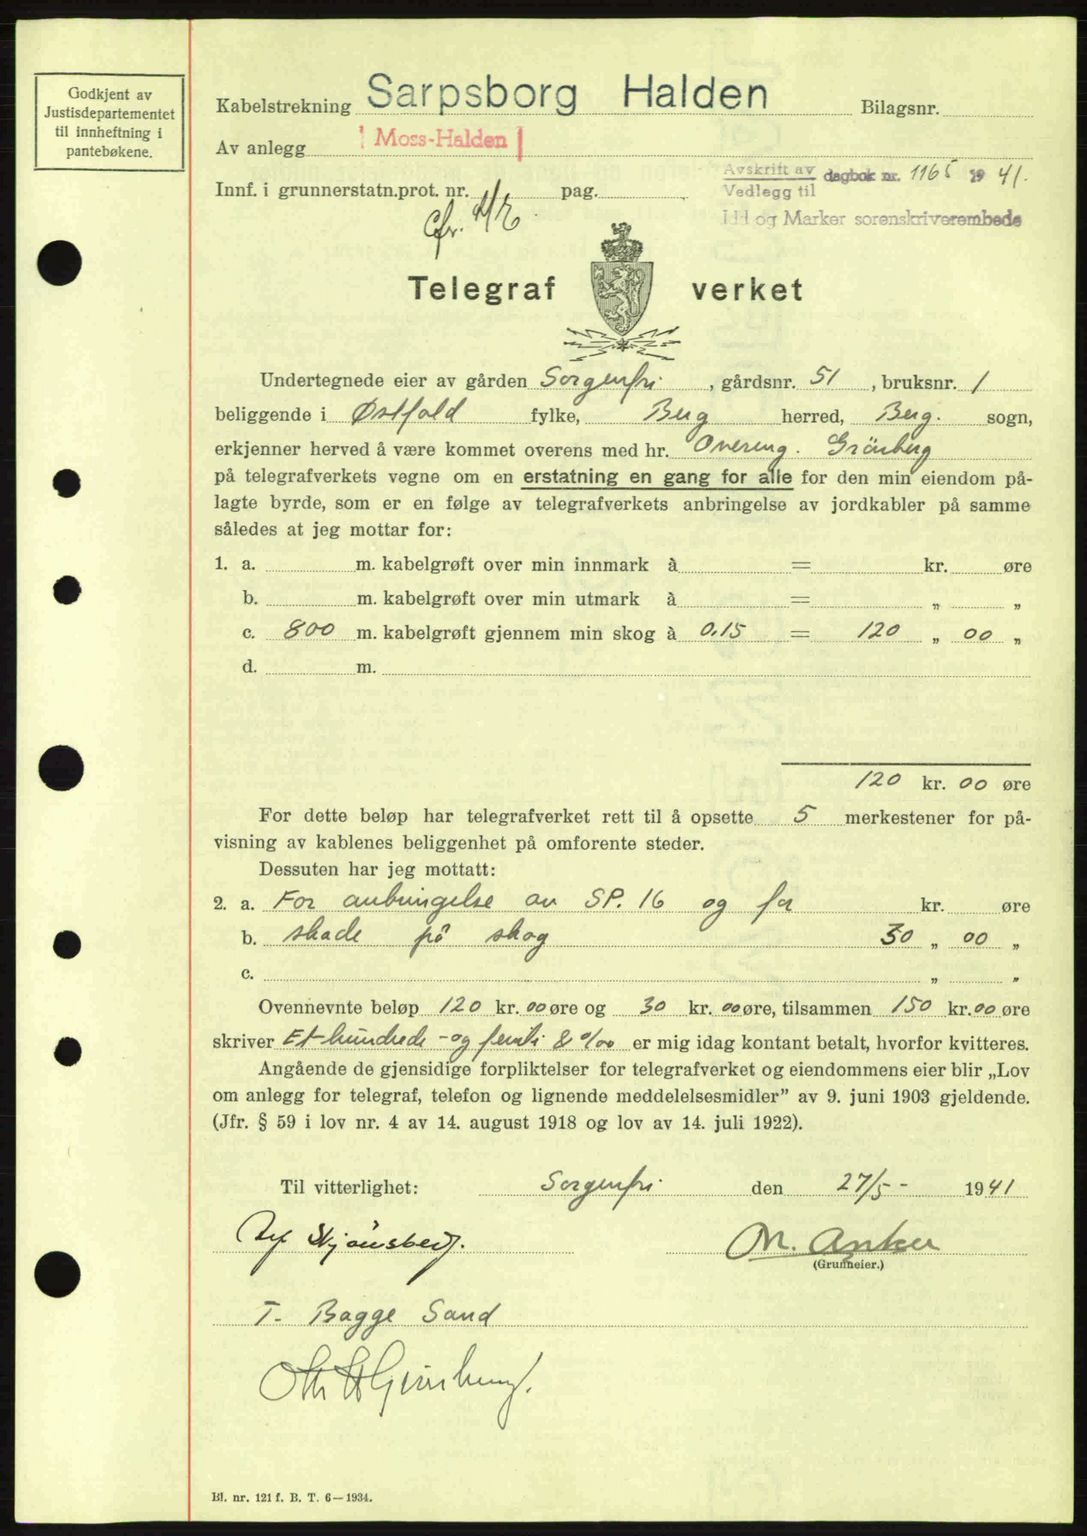 Godkjent av
Justisdepartementet
til innheftning i
pantebøkene.
Kabelstrekning Sarpsborg Halden Bilagsnr.
Av anlegg Moss-Halden
Avskrift av dagbok nr. 1165 1941.
Innf. i grunnerstatn.prot. nr. pag. Vedlegg til
Cfr. og Marker sorenskriverembede
Telegraf verket
Undertegnede eier av gården Sorgenfri, gårdsnr. 51, bruksnr. 1
beliggende i Østfold fylke, Berg herred, Berg. sogn,
erkjenner herved å være kommet overens med hr. Overing. Grönberg
på telegrafverkets vegne om en erstatning en gang for alle for den min eiendom på-
lagte byrde, som er en følge av telegrafverkets anbringelse av jordkabler på samme
således at jeg mottar for:
1. a. m. kabelgrøft over min innmark à = kr. øre
b. m. kabelgrøft over min utmark à = „ „
c. 800 m. kabelgrøft gjennem min skog à 0.15 = 120 „ 00 „
d. m.
120 kr. 00 øre
For dette beløp har telegrafverket rett til å opsette 5 merkestener for på-
visning av kablenes beliggenhet på omforente steder.
Dessuten har jeg mottatt:
2. a. For anbringelse av SP. 16 og for kr. øre
b. skade på skog 30 „ 00 „
c. „ „
Ovennevnte beløp 120 kr. 00 øre og 30 kr. 00 øre, tilsammen 150 kr. 00 øre
skriver Et hundrede - og femti & 0/00 er mig idag kontant betalt, hvorfor kvitteres.
Angående de gjensidige forpliktelser for telegrafverket og eiendommens eier blir „Lov
om anlegg for telegraf, telefon og lignende meddelelsesmidler” av 9. juni 1903 gjeldende.
(Jfr. § 59 i lov nr. 4 av 14. august 1918 og lov av 14. juli 1922).
Til vitterlighet: Sorgenfri den 27/5 - 1941
M. Anker
(Grunneier.)
T. Bagge Sand
Bl. nr. 121 f. B. T. 6—1934.